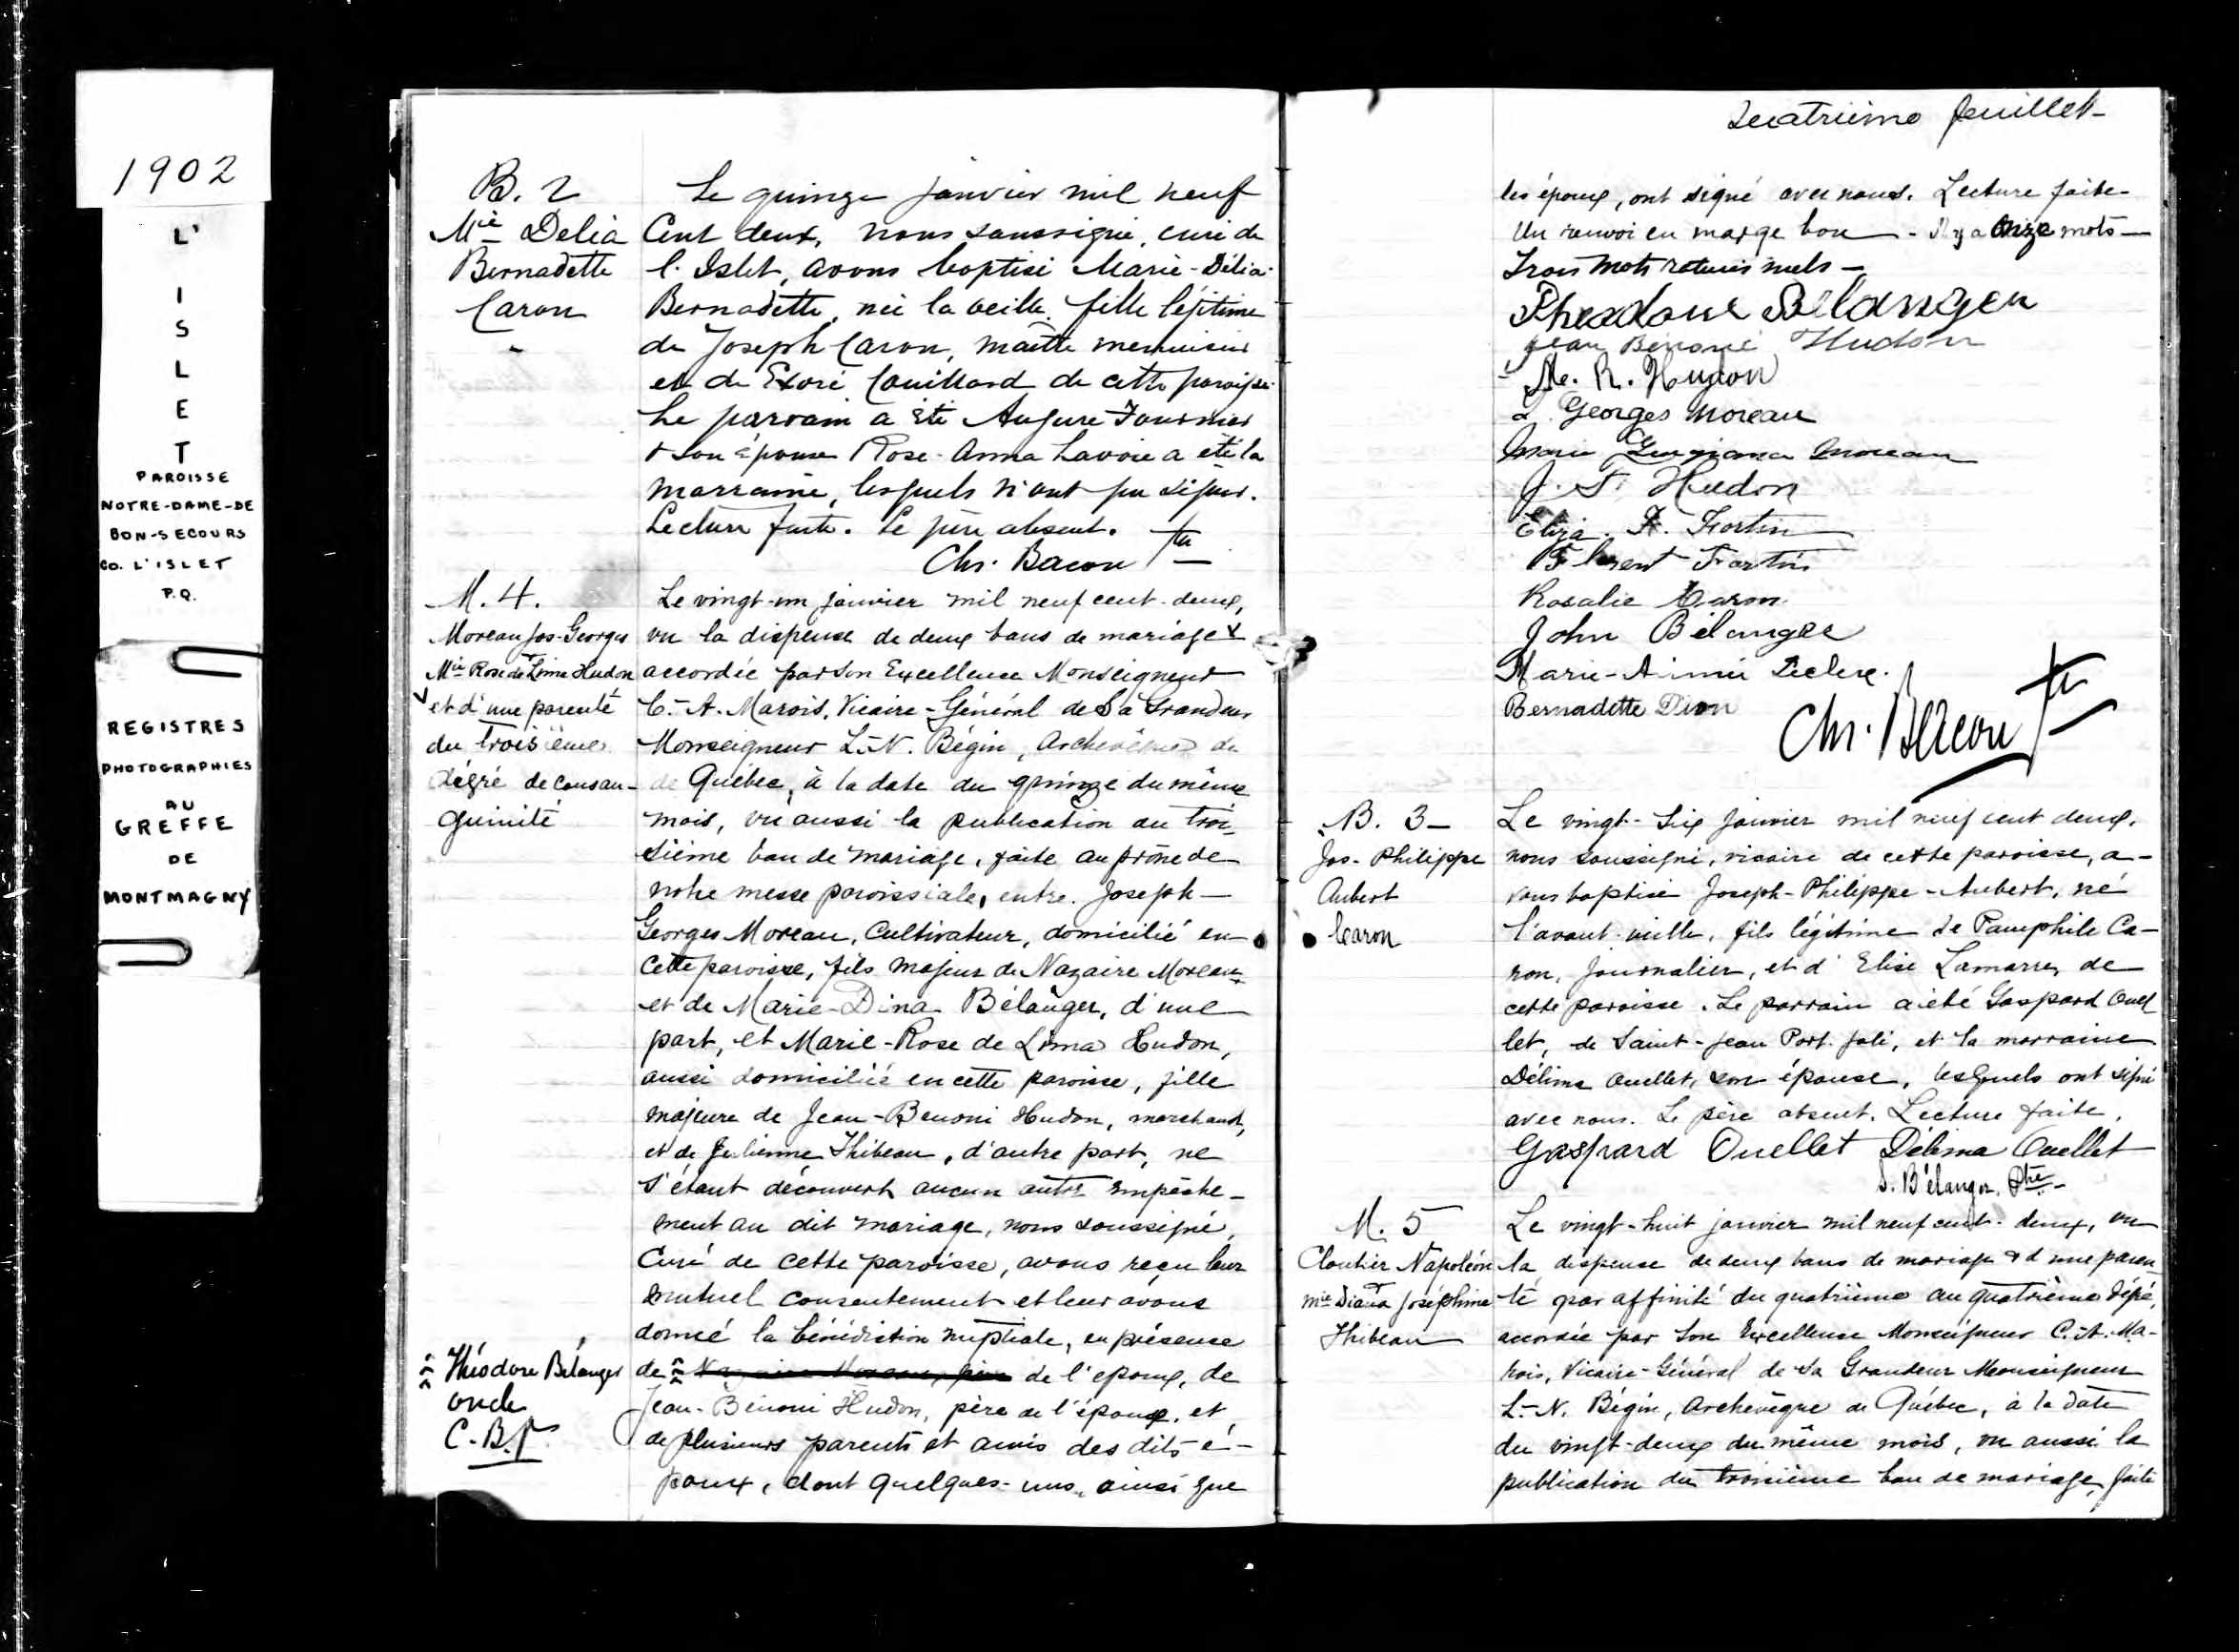 1902
L'
I
S
L
E
T
PAROISSE
NOTRE-DAME-DE
BON-SECOURS
CO. L'ISLET
P.Q.
REGISTRES
PHOTOGRAPHIES
AU
GREFFE
DE
MONTMAGNY
B. 2
Mie Delia
Bernadette
Caron
Le quinze janvier mil neuf
Cent deux, nous soussigné, curé de
l'Islet, avons baptisé Marie-Délia-
Bernadette, née la veille, fille légitime
de Joseph Caron, maître menuisier
et de Exoré Couillard de cette paroisse.
Le parrain a été Fournier
& son épouse Rose-Anna Lavoie a été la
marraine, lesquels n'ont pu signer.
Lecture faite. Le père absent.
Chs. Bacon Ptr
M. 4.
Moreau Jos-Georges
Mie Rose de Lima Hudon
et d'une parenté
du troisième
dégré de consan-
guinité
Le vingt-un janvier mil neuf cent-deux,
vu la dispense de deux bans de mariage
accordée par Son Excellence Monseigneur
C.-A. Marois, Vicaire-Général de Sa Grandeur
Monseigneur L.-N. Bégin, Archevêque de
de Québec, à la date du quinze du même
mois, vu aussi la publication du troi-
sième ban de mariage, faite au prône de
notre messe paroissiale, entre Joseph-
Georges Moreau, Cultivateur, domicilié en
cette paroisse, fils majeur de Nazaire Moreau
et de Marie-Dina Bélanger, d'une
part, et Marie-Rose de Lima Hudon,
aussi domiciliée en cette paroisse, fille
majeure de Jean-Benoni Hudon, marchand,
et de Julienne Thibeau, d'autre part, ne
s'étant découvert aucun autre empêche-
ment au dit mariage, nous soussigné,
Curé de cette paroisse, avons reçu leur
mutuel consentement et leur avons
donné la bénédiction nuptiale, en présence
de Nazaire Moreau, père de l'époux, de
Jean-Bénoni Hudon, père de l'épouse, et
de plusieurs parents et amis des dits é-
poux, dont quelques-uns, ainsi que
Théodore Bélanger
oncle
C.B.P.
Quatrième feuillet-
les époux, ont signé avec nous. Lecture faite-
Un renvoi en marge bon - Il y a onze mots-
Trois mots raturés nuls-
Théodore Bélanger
Jean Bénoni Hudon
R. Hudon
Georges Moreau
Marie Moreau
J. T. Hudon
Eliza. A. Fortin
Florent Fortin
Rosalie Caron
John Bélanger
Marie-Aimée Leclerc.
Bernadette Dion
Chs. Bacon Ptr
B. 3-
Jos-Philippe
Aubert
Caron
Le vingt-six janvier mil neuf cent deux,
nous soussigné, vicaire de cette paroisse, a-
vons baptisé Joseph-Philippe-Aubert, né
l'avant-veille, fils légitime de Pamphile Ca-
ron, Journalier, et d'Elise Lamarre, de
cette paroisse. Le parrain a été Gaspard Ouel
let, de Saint-Jean Port-Joli, et la marraine
Délima Ouellet, son épouse, lesquels ont signé
avec nous. Le père absent. Lecture faite.
Gaspard Ouellet Délima Ouellet
S. Bélanger. Ptre-
M. 5
Cloutier Napoléon
Mie Diana Joséphine
Thibeau
Le vingt-huit janvier mil neuf cent-deux, vu
la dispense de deux bans de mariage & d'une paren
té par affinité du quatrième au quatrième dégré,
accordée par Son Excellence Monseigneur C.-A. Ma-
rois, Vicaire-Général de Sa Grandeur Monseigneur
L.-N. Bégin, Archevêque de Québec, à la date
du vingt-deux du même mois, vu aussi la
publication du troisième ban de mariage, faite